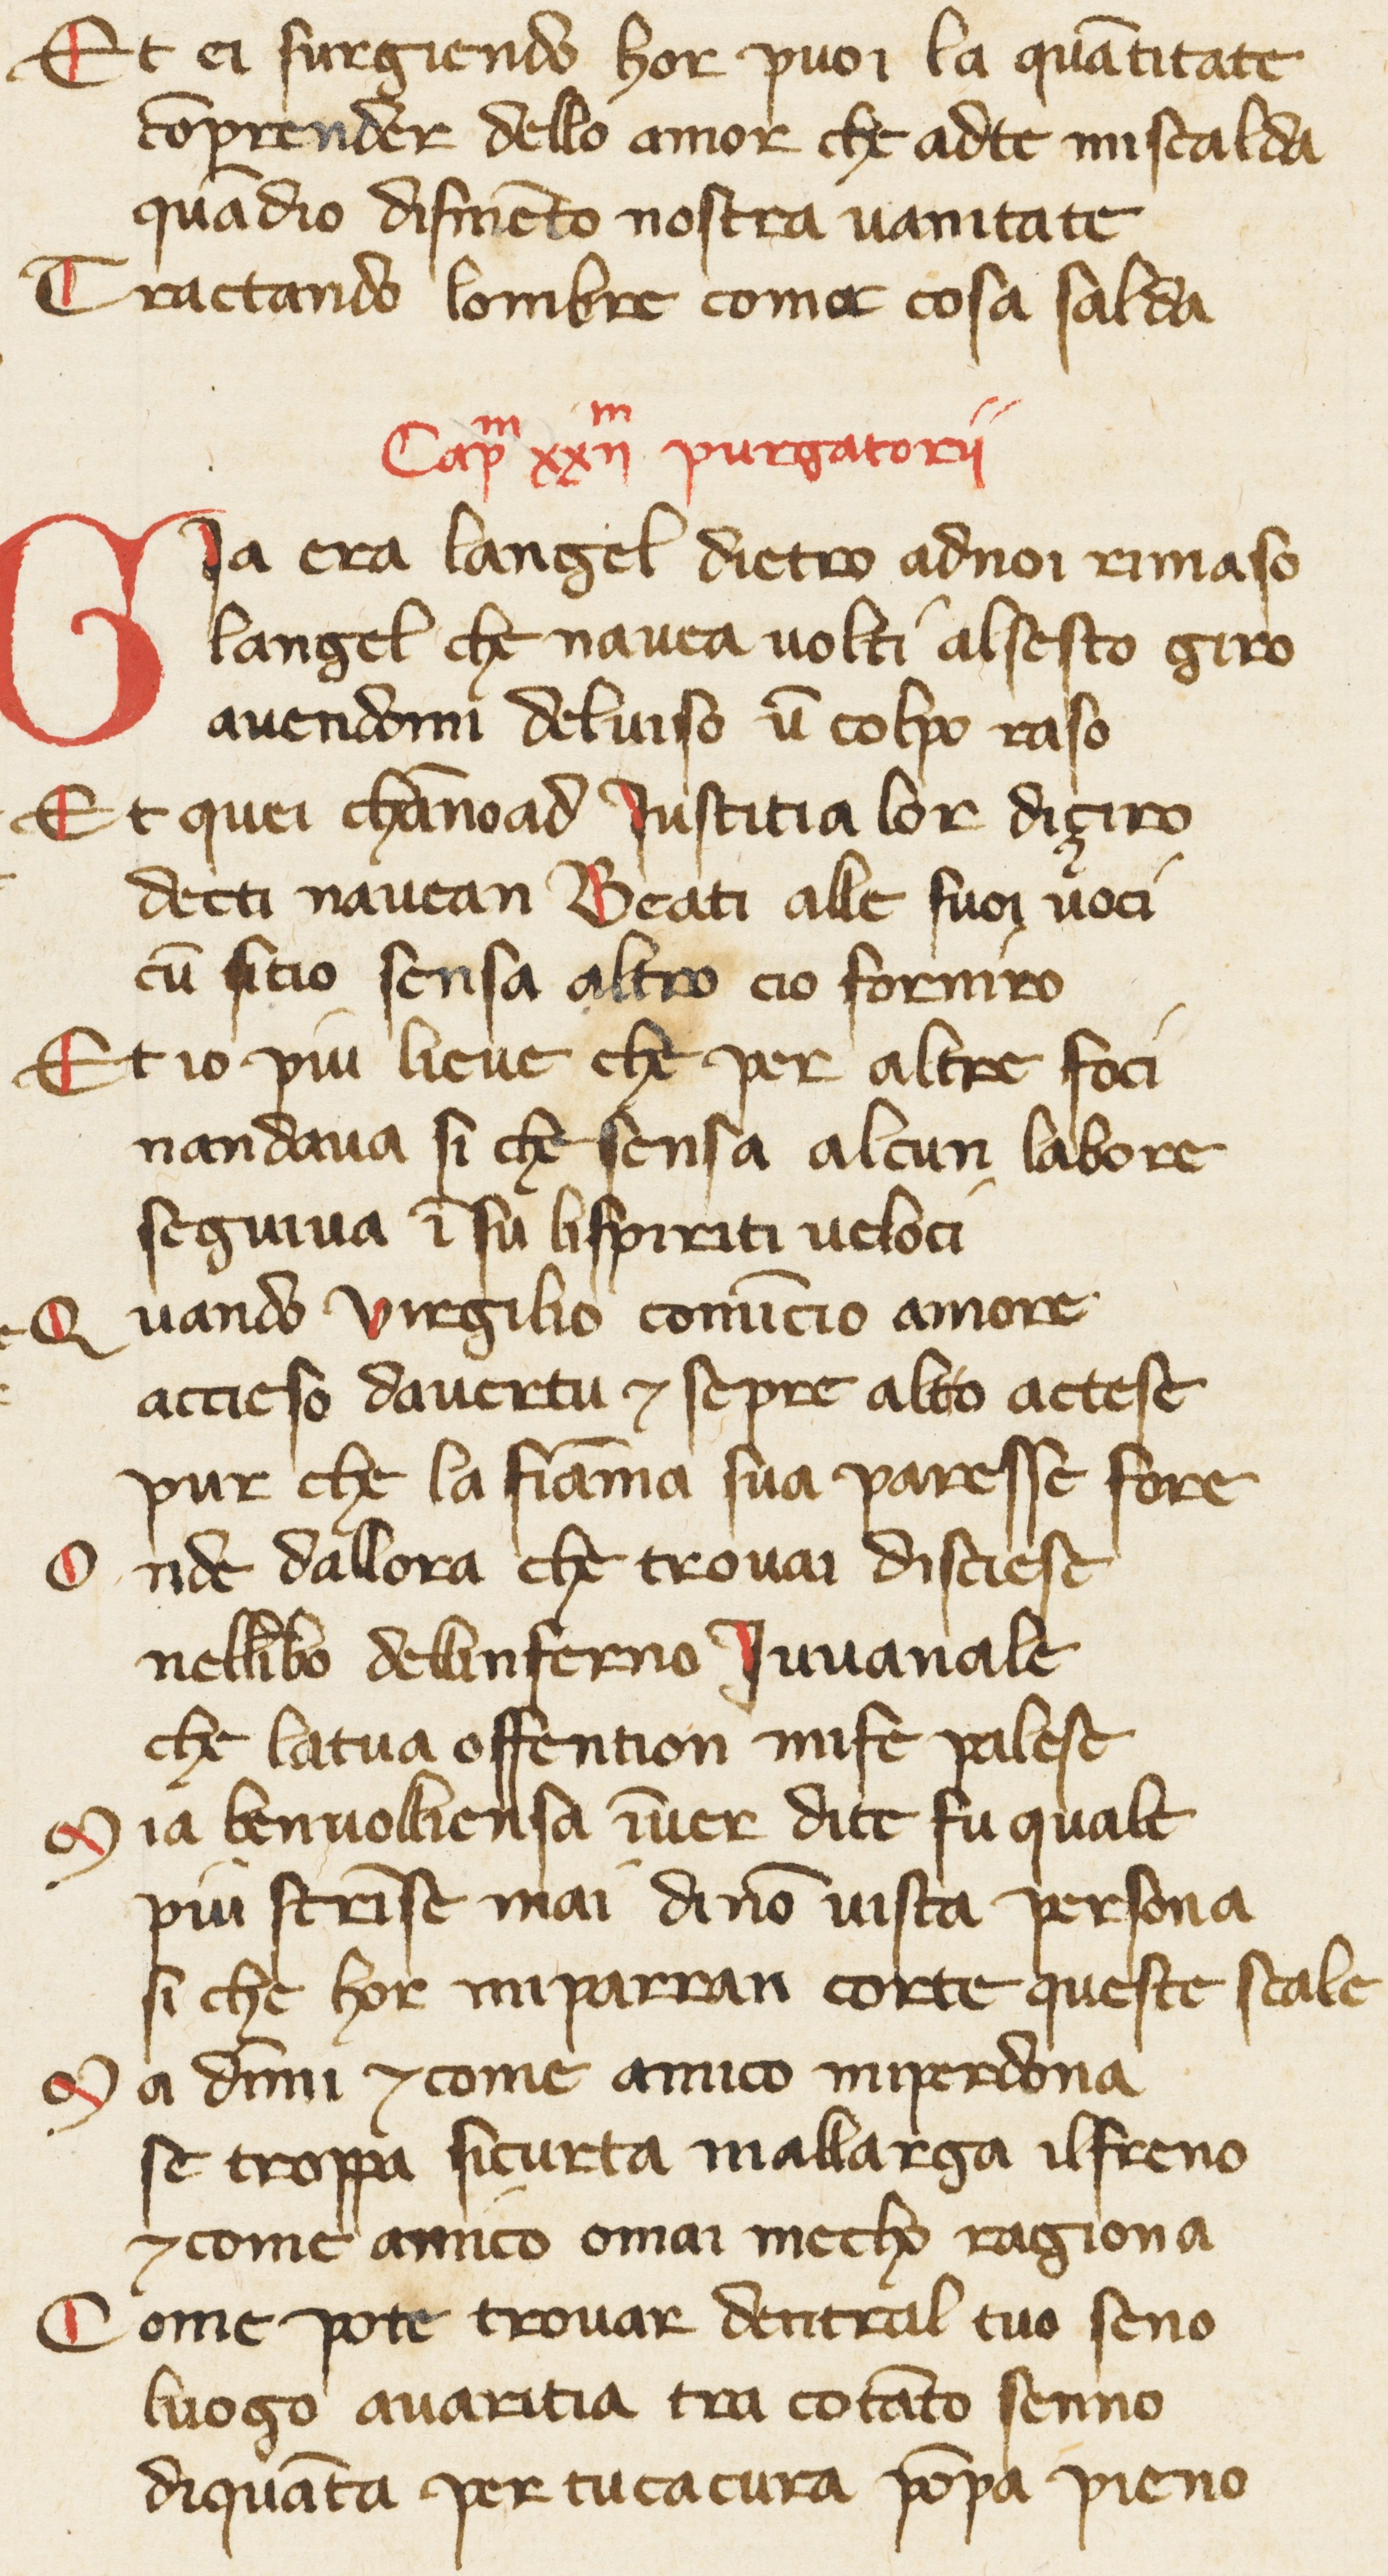 Et ei surgiendo hor puoi la quātitate
cōprender dello amor che adte miscalda
quādio dismēto nostra uanitate
Tractando lombre come cosa salda
Capᵐ xxijᵐ purgatorij
Gia era langel dietro adnoi rimaso
langel che nauea uolti alsesto giro
auendomi deluiso ū colpo raso
Et quei chāno ad Iustitia lor diçiro
decti nauean Beati alle suoi uoci
cū sitio sensa altro cio forniro
Et io piu lieue che per altre foci
nandaua si che sensa alcun labore
seguiua ī su lispiriti ueloci
Quando Virgilio comīcio amore
accieso dauertu ⁊ sepre altro actese
pur che la fiāma sua paresse fore
Onde dallora che trouai disciese
nellībo dellinferno Iuuanale
che latua offention mife palese
Mia benuolliensa īuer dite fu quale
piu strīse mai dinō uista persona
si che hor miparran corte queste scale
Ma dīmi ⁊ come amico miperdona
se troppa sicurta mallarga ilfreno
⁊ come amico omai mecho ragiona
Come pote trouar dentral tuo seno
luogo auaritia tra cotāto senno
diquāta per tuca cura pōpa pieno